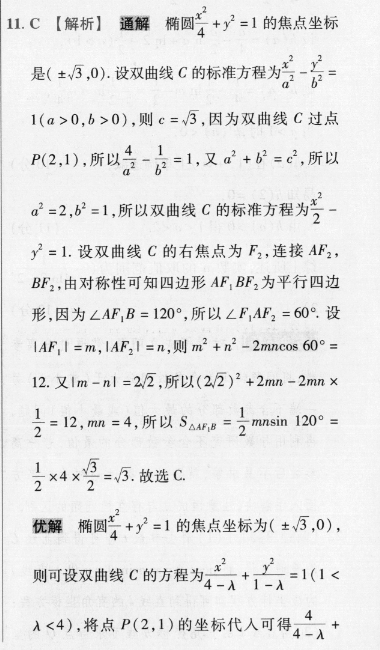 11. C 【解析】 通解 椭圆x²/4+y²=1的焦点坐标
是(±√3,0). 设双曲线 C 的标准方程为x²/a²-y²/b²=
1(a>0,b>0),则 c=√3,因为双曲线 C 过点
P(2,1),所以4/a²-1/b²=1,又 a²+b²=c²,所以
a²=2,b²=1,所以双曲线 C 的标准方程为x²/2-
y²=1. 设双曲线 C 的右焦点为 F₂,连接 AF₂,
BF₂,由对称性可知四边形 AF₁BF₂为平行四边
形,因为∠AF₁B=120°,所以∠F₁AF₂=60°. 设
|AF₁|=m,|AF₂|=n,则 m²+n²-2mncos 60°=
12. 又|m-n|=2√2,所以(2√2)²+2mn-2mn×
1/2=12,mn=4,所以 S△AF₁B=1/2mnsin 120°=
1/2×4×√3/2=√3. 故选 C.
优解 椭圆x²/4+y²=1的焦点坐标为(±√3,0),
则可设双曲线 C 的方程为x²/(4-λ)+y²/(1-λ)=1(1<
λ<4),将点 P(2,1)的坐标代人可得4/(4-λ)+